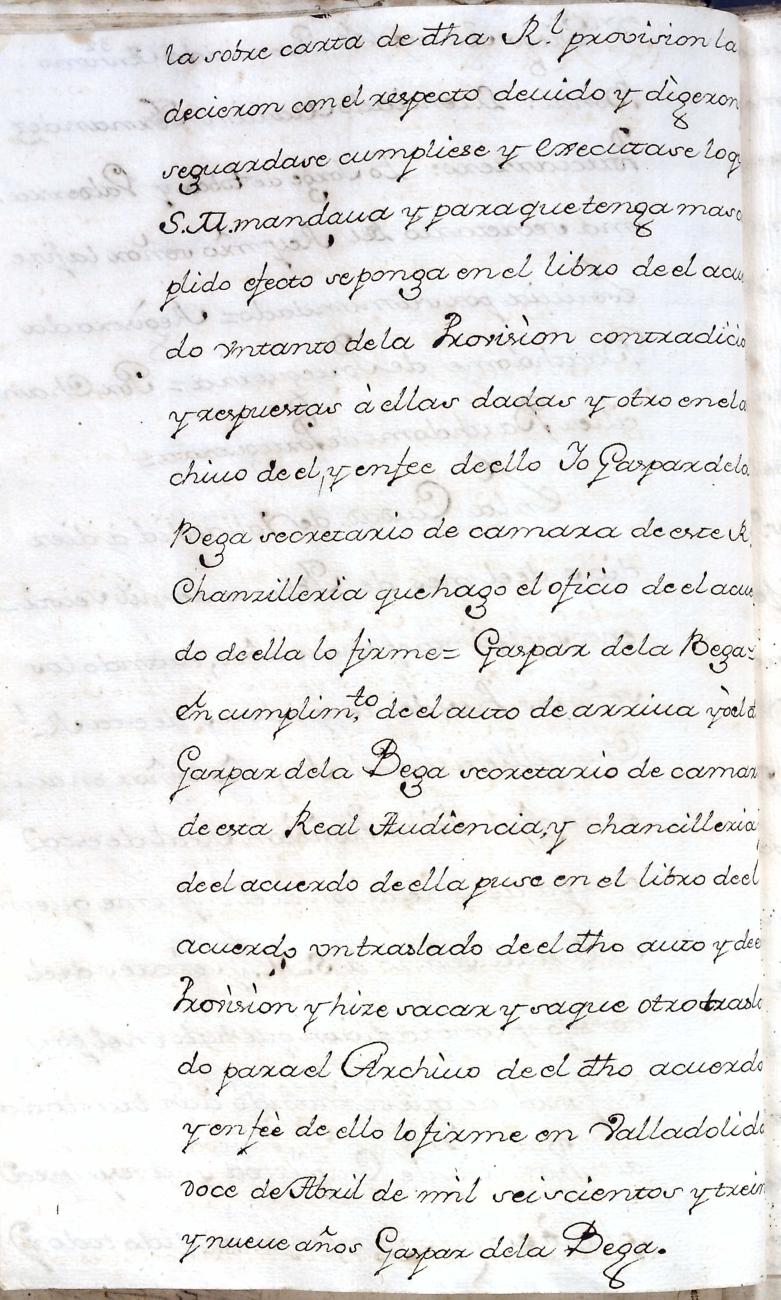 la sobre carta de dha R.l provision la
decieron con el respecto deuido y digeron
seguardase cumpliese y execütase lo q
S.M. mandaua y para que tenga mas c
plido efecto se ponga en el libro de el acu
do vn tanto de la Provision contradicio
y respuestas à ellas dadas y otro en el a
chiuo de el, y enfee de ello Io Gaspar de la
Bega secretario de camara de este R.
Chanzilleria que hago el oficio de el acue
do de ella lo firme = Gaspar de la Bega =
En cumplim.to de el auto de arriua yo el d
Gaspar de la Bega secretario de camar
de esta Real Audiencia, y chancilleria
de el acuerdo de ella puse en el libro de el
acuerdo vn traslado de el dho auto y de e
Provision y hize sacar y saque otro trasla
do para el Archiuo de el dho acuerdo
y enfeè de ello lo firme en Valladolid a
doce de Abril de mil seiscientos y trein
y nueue años Gaspar de la Bega.